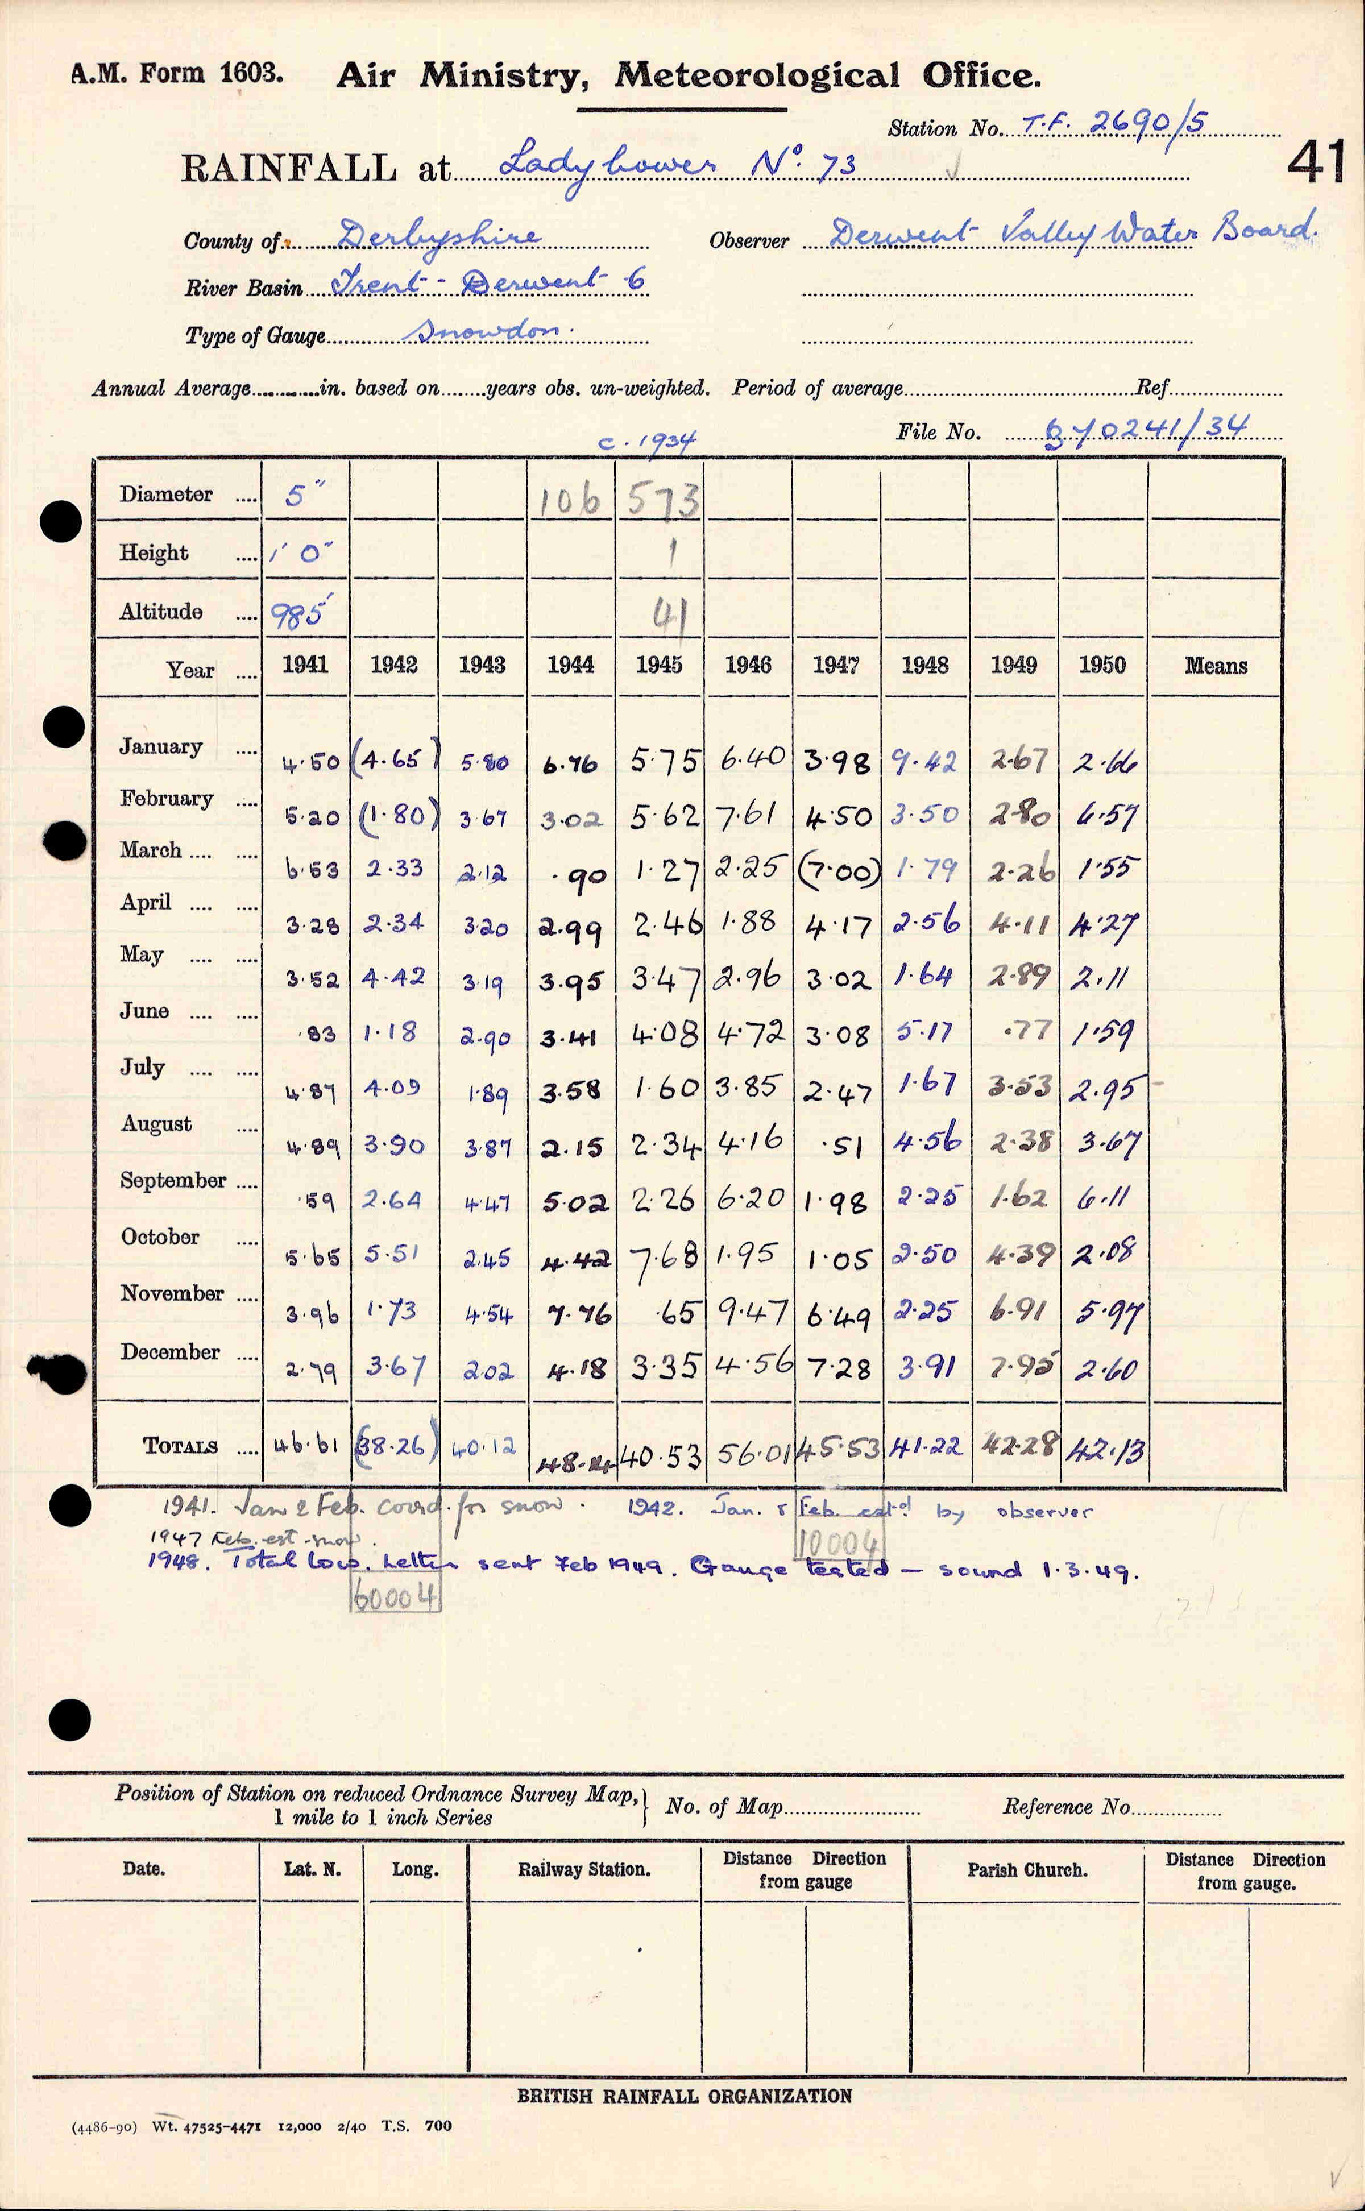 A.M. Form 1603. Air Ministry, Meteorological Office.
Station No. T.F. 2690/5
RAINFALL at Ladybower No. 73
41
County of Derbyshire Observer Derwent Valley Water Board.
River Basin Trent - Derwent 6
Type of Gauge Snowdon.
Annual Average in. based on years obs. un-weighted. Period of average Ref
File No. 340241/34
c. 1934
Diameter .... 5" 106 573
Height .... 1' 0" 1
Altitude .... 985' 41
Year .... 1941 1942 1943 1944 1945 1946 1947 1948 1949 1950 Means
January .... 4.50 (4.65) 5.80 6.76 5.75 6.40 3.98 9.42 2.67 2.66
February .... 5.20 (1.80) 3.67 3.02 5.62 7.61 4.50 3.50 2.80 6.57
March .... .... 6.53 2.33 2.12 .90 1.27 2.25 (7.00) 1.79 2.26 1.55
April .... .... 3.28 2.34 3.20 2.99 2.46 1.88 4.17 2.56 4.11 4.27
May .... .... 3.52 4.42 3.19 3.95 3.47 2.96 3.02 1.64 2.89 2.11
June .... .... .83 1.18 2.90 3.41 4.08 4.72 3.08 5.17 .77 1.59
July .... .... 4.87 4.09 1.89 3.58 1.60 3.85 2.47 1.67 3.53 2.95
August .... 4.89 3.90 3.87 2.15 2.34 4.16 .51 4.56 2.38 3.67
September .... .59 2.64 4.47 5.02 2.26 6.20 1.98 2.25 1.62 6.11
October .... 5.65 5.51 2.45 4.42 7.68 1.95 1.05 2.50 4.39 2.08
November .... 3.96 1.73 4.54 7.76 .65 9.47 6.49 2.25 6.91 5.97
December .... 2.79 3.67 2.02 4.18 3.35 4.56 7.28 3.91 7.95 2.60
TOTALS .... 46.61 (38.26) 40.12 48.14 40.53 56.01 45.53 41.22 42.28 42.13
1941. Jan & Feb. coord. for snow. 1942. Jan. & Feb. estd by observer
1947 Feb. est. snow.
10004
1948. Total low. Letter sent Feb 1949. Gauge tested – sound 1.3.49.
60004
Position of Station on reduced Ordnance Survey Map, 1 mile to 1 inch Series } No. of Map Reference No
Date. Lat. N. Long. Railway Station. Distance Direction from gauge Parish Church. Distance Direction from gauge.
BRITISH RAINFALL ORGANIZATION
(4486-90) Wt. 47525-4471 12,000 2/40 T.S. 700